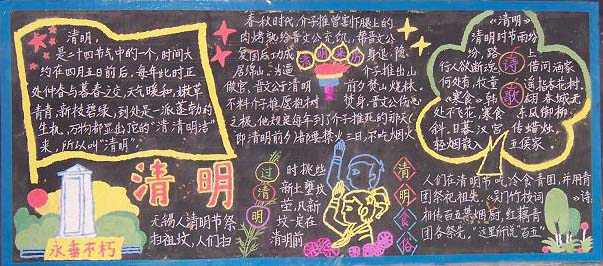 清明,
是二十四节气中的一个,时间大
约在四月五日前后,每年此时正
处仲春与暮春之交,天气暖和,嫩草
青青,新枝碧绿,到处是一派蓬勃的
生机,万物都显出它的“清清明洁”
来,所以叫“清明”.
春秋时代,介子推曾割下腿上的
肉烤熟给晋文公充饥,帮晋文公
复国后功成
身退,隐
清明来历
居绵山,为逼
介子推出山
做官,晋文公于清明
前夕焚山烧林,
不料介子推愿抱树
焚身,晋文公伤心
之极,他规定每年到了介子推死的那天
(即清明前夕)都要禁火三日,不吃烟火
《清明》
清明时节雨纷
纷,路上
行人欲断魂.
借问酒家
何处有,牧童
遥指杏花村.
诗歌
《寒食》韩
翃 春城无
处不飞花,寒食
东风御柳
斜.日暮汉宫
传蜡烛,
轻烟散入
五侯家.
清明
永垂不朽
无锡人清明节祭
扫祖坟,人们扫
过清明
时挑些
新土壅坟
茔,凡新
坟一定在
清明前
清明食俗
人们在清明节吃冷食青团,并用青
团祭祀祖先.
吴门竹枝词
》诗
相传百五禁烟厨,红藕青
团各祭先,“这里所说“百五”